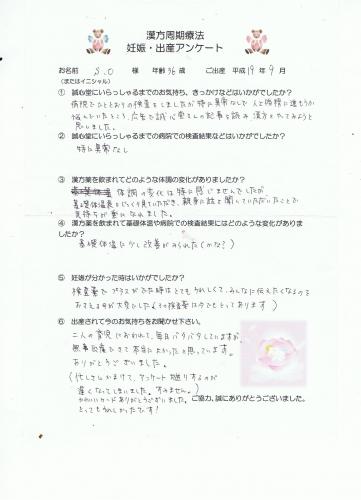 漢方周期療法
妊娠・出産アンケート
お名前 S.O 様 年齢36歳 ご出産 平成19年9月
(またはイニシャル)
① 誠心堂にいらっしゃるまでのお気持ち、きっかけなどはいかがでしたか?
病院でひととおりの検査をしましたが特に異常なしで 人工授精に進もうか
悩んでいたところ、広告で誠心堂さんの記事を読み 漢方をためてみようと
思いました。
② 誠心堂にいらっしゃるまでの病院での検査結果などはいかがでしたか?
特に異常なし
③ 漢方薬を飲まれてどのような体調の変化がありましたか?
体調の変化は特に感じませんでしたが、
基礎体温表をじっくり見ていただき、親身に話を聞いていただいたことで
気持ちが楽になれました。
④ 漢方薬を飲まれて基礎体温や病院での検査結果にはどのような変化がありま
したか?
基礎体温に少し改善がみられた(かな?)
⑤ 妊娠が分かった時はいかがでしたか?
検査薬でプラスがでた時はとてもうれしくて、みんなに伝えたくなるのを
おさえるのが大変でした(その検査薬は今でもとってあります)
⑥ 出産されて今のお気持ちをお聞かせ下さい。
二人の育児におわれて、毎日バタバタしていますが、
無事出産できて本当によかったと思っています。
ありがとうございました。
(忙しさにかまけて、アンケートを送りするのが
遅くなってしまいました。すみません。)
かわいいカードありがとうございました。
とってもうれしかったです!
ご協力、誠にありがとうございました。